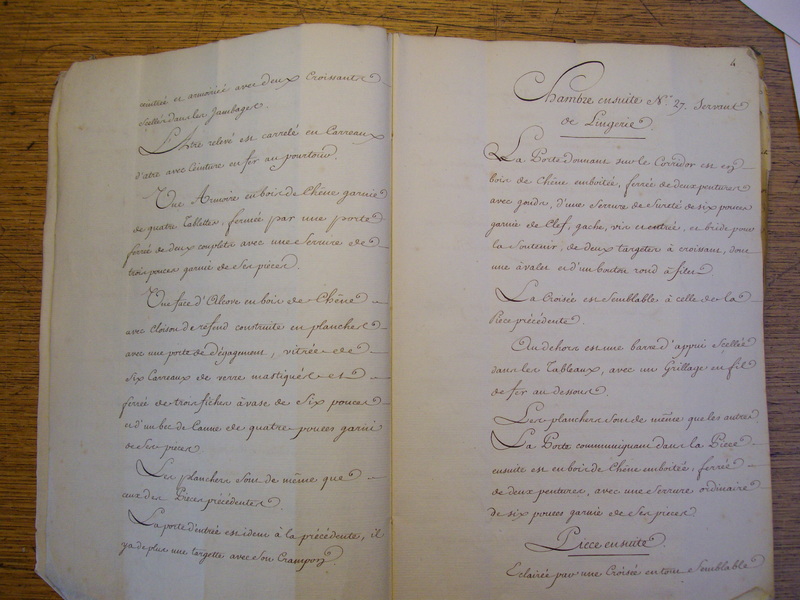 ceintrée et armoriée avec deux Croissants
scellés dans les Jambages.
L'Atre relevé est carrelé en Carreaux
d'atre avec Ceinture en fer au pourtour.
Une Armoire en bois de Chêne garnie
de quatre Tablettes, fermée par une porte
ferrée de deux couplets avec une Serrure de
trois pouces garnie de Ses pièces.
Une face d'Alcove en bois de Chêne
avec cloison de refend construite en planches
avec une porte de dégagement, vitrée de
Six Carreaux de verre mastiqués et
ferrée de trois fiches à vase de Six pouces
et d'un bec de Canne de quatre pouces garni
de Ses pièces
Les planchers Sont de même que
ceux des Pieces précédentes.
La porte d'entrée est idem à la précédente, il
y a de plus une targette avec Son Crampon
4
Chambre ensuite N.° 27. Servant
de Lingerie.
La Porte donnant sur le Corridor est en
bois de chêne emboitée, ferrée de deux pentures
avec gonds, d'une Serrure de Sureté de six pouces
garnie de Clef, gache, vis et entrée, et bride pour
la Soutenir, de deux targettes à croissant, dont
une à valet et d'un bouton rond à filet
La Croisée est Semblable à celle de la
Piece précédente.
Au dehors est une barre d'appui Scellée
dans les Tableaux, avec un Grillage en fil
de fer au dessous.
Les planchers Sont de même que les autres
La Porte communiquant dans la Piece
ensuite est en bois de Chêne emboitée, ferrée
de deux pentures, avec une Serrure ordinaire
de six pouces garnie de Ses pieces
Piece ensuite.
Eclairée par une Croisée en tout Semblable